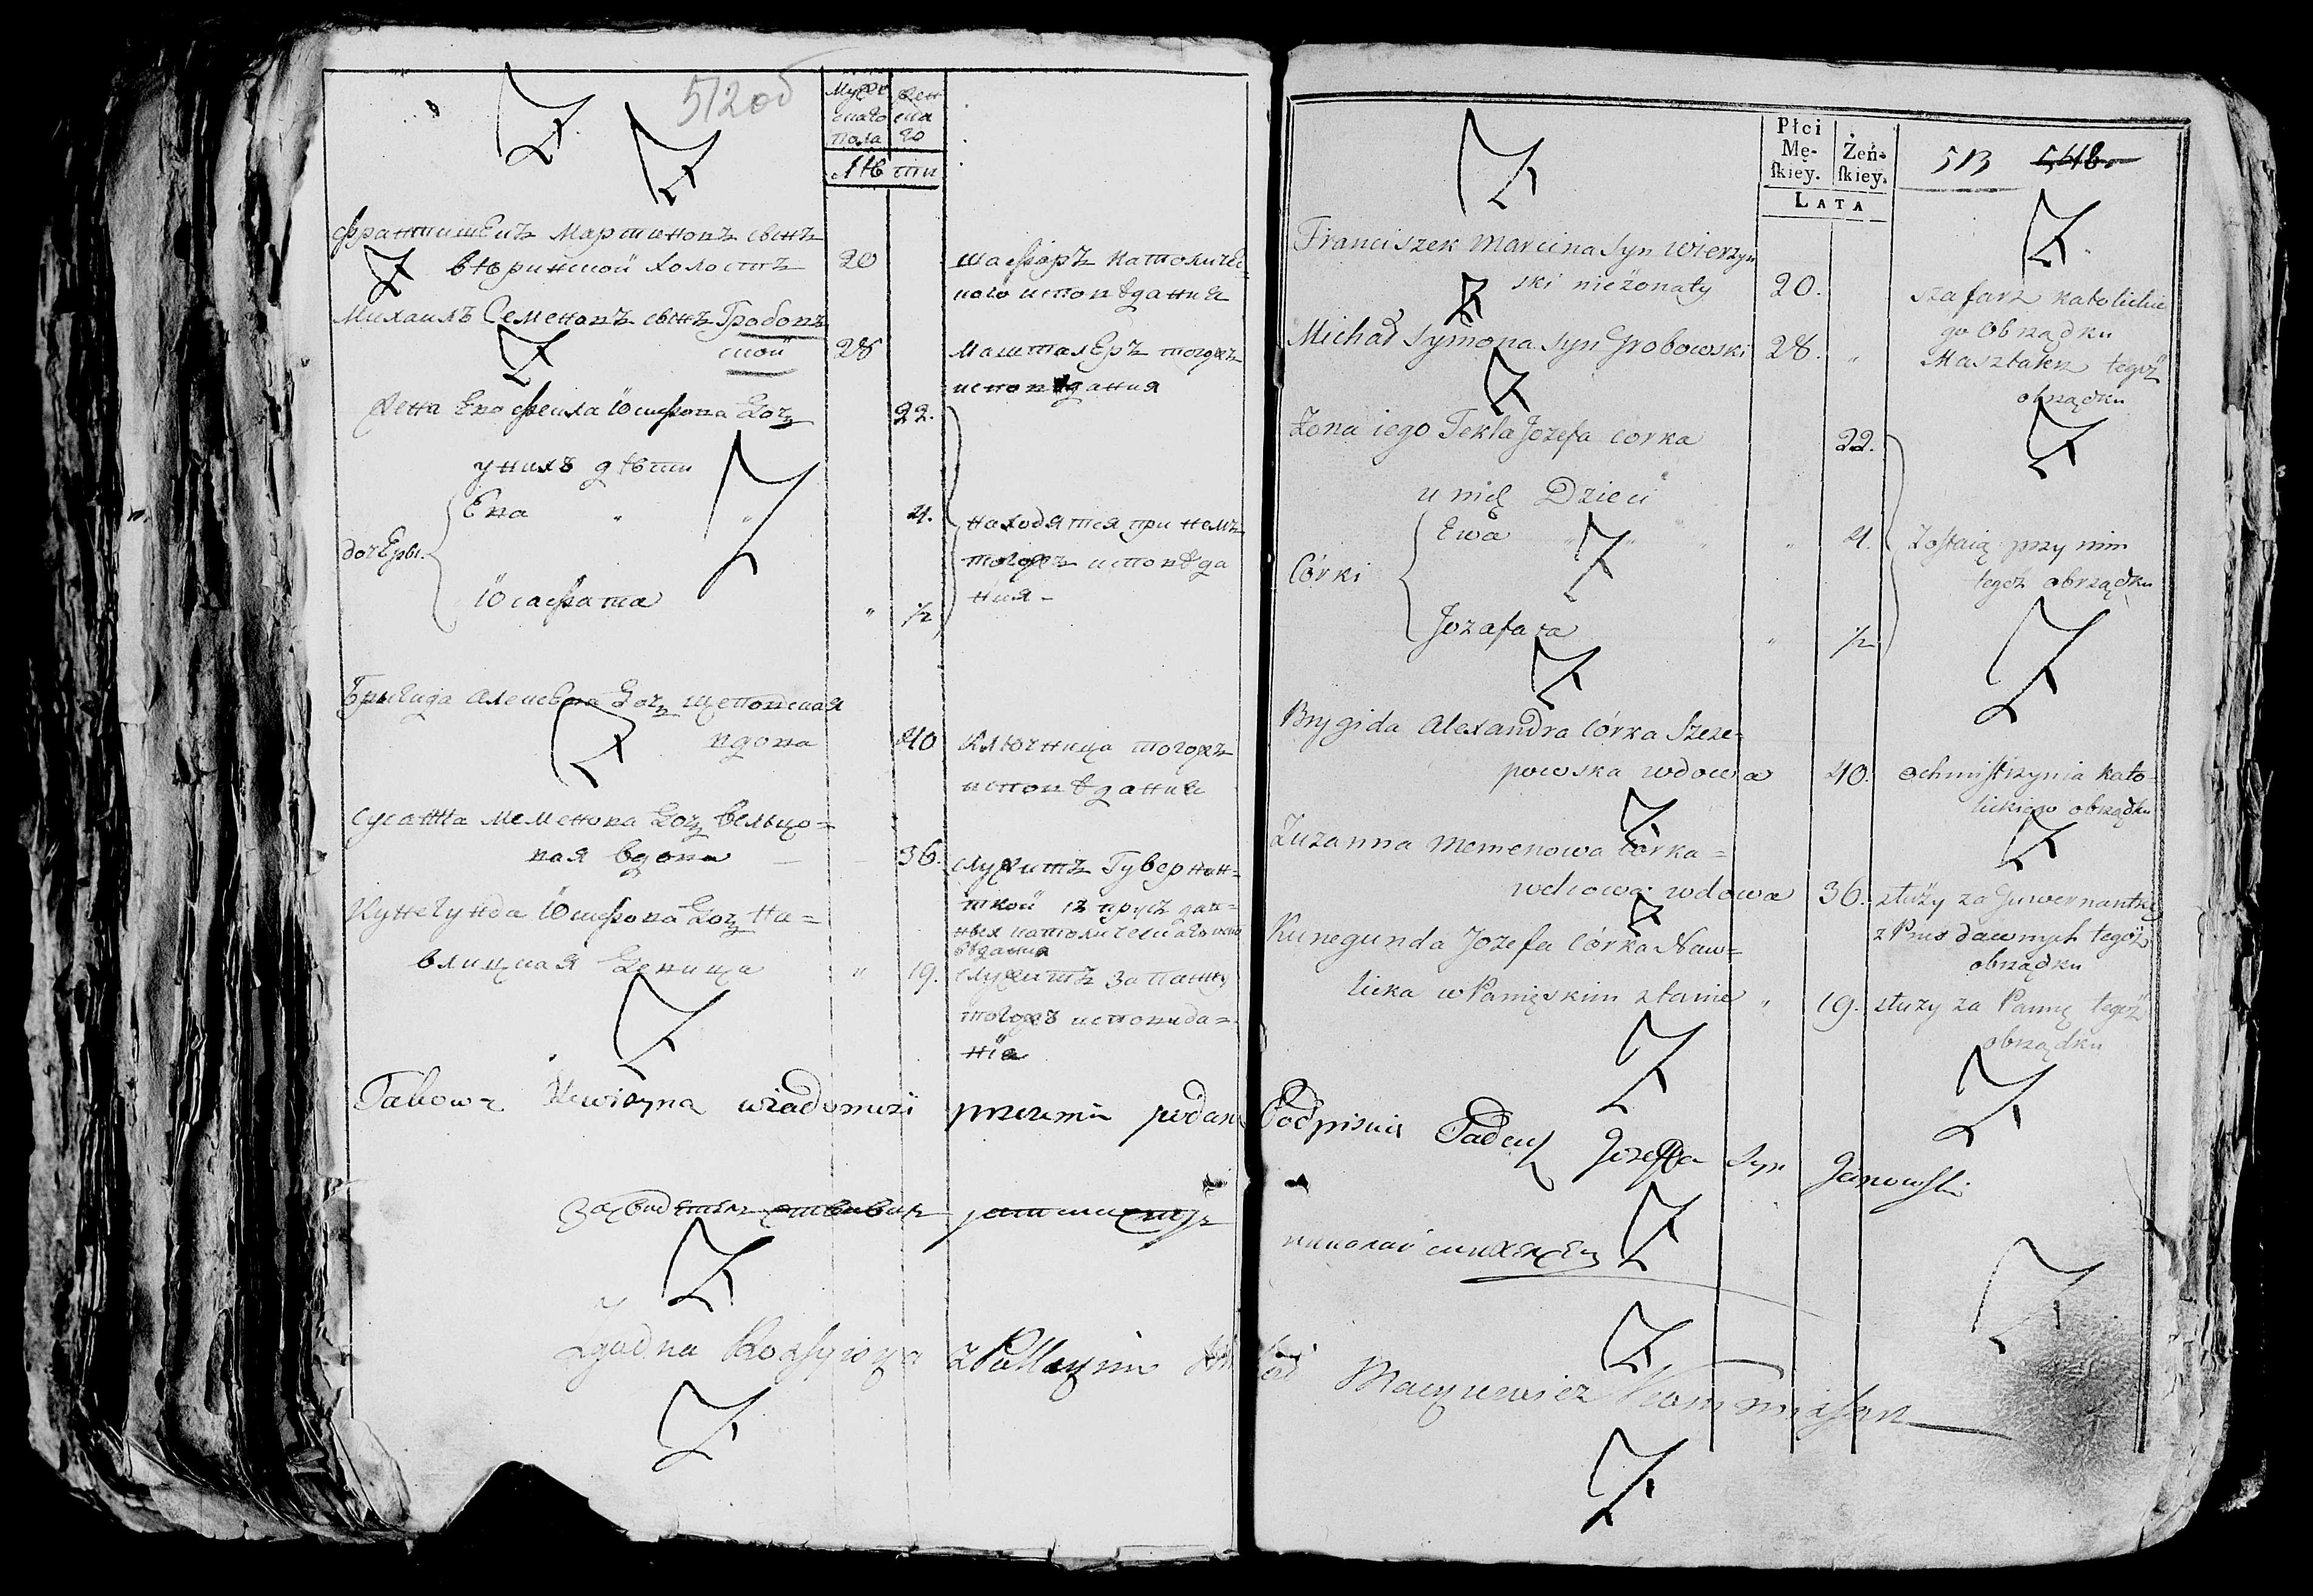 512 об
Муже
ска́го
пола
жен
ска
го
Лѣ
ты
Францишекъ Мартиновъ сынъ
Вѣринской холостъ 20 шафаръ католичес=
каго исповѣдания
Михаилъ Семеновъ сынъ Гробов
ской 28 Машталеръ тогожъ
исповѣдания
Жена Его Фекла Юсифова доч 22.
у нихъ дѣти
дочеры. Ева " " 4. находятся при немъ
тогожъ исповѣда
Юсафата " ½ ния -
Бригида Алексева доч щеповская
вдова 40 ключница тогожъ
исповѣдания
Сусанна Меменова доч Вельцо=
вая вдова 36. служитъ Гувернан=
ткой
Кунегунда Юсифова доч На=
влицкая девица " 19. служитъ за панну
тогожъ исповида=
нія
Takową Rewizyną wiadomość przezemnie podaną
Zgodna Rossyiska z Polskim
Płci
Mę-
skiey.
Żeń-
skiey.
LATA
513 518.
Franciszek Marcina Syn Wierzyń
ski nieżonaty 20. szafarz katolickie
go Obrządku
Michał Symona Syn Grobowski 28. " Masztalerz tegoż
obrządku
Żona iego Tekla Jozefa corka 22.
u nich Dzieci
Córki Ewa " " " " 4. Zostaią przy nim
tegoż obrządku
Jozafata " ½
Brygida Alexandra Córka Szcze=
powska wdowa 40. ochmistrzynia kato=
lickiego obrządku
Zuzanna Memenowa Córka=
wdowa 36. służy za Guwernantkę
z Prus dawnych tegoż
obrządku
Kunegunda Jozefa Córka Naw=
licka w Panięskim stanie " 19. służy za Pannę tegoż
obrządku
Podpisuię Tadeusz Jozeffa Syn Janowski
Macyiewicz Kommissarz